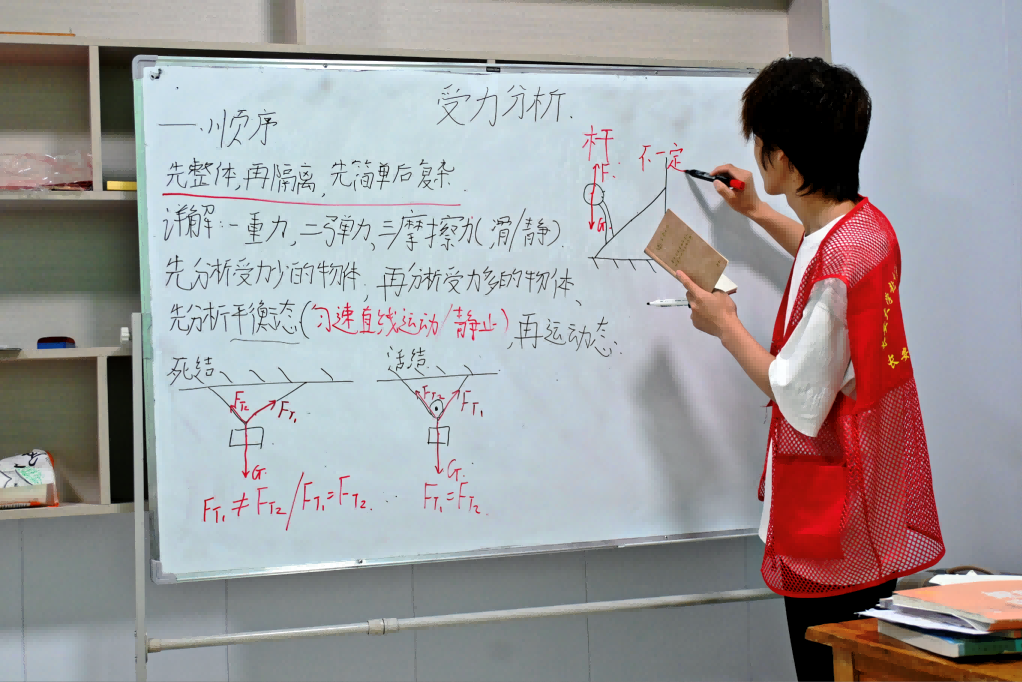 受力分析.
一、顺序
先整体,再隔离,先简单后复杂.
详解:一重力,二弹力,三摩擦力(滑/静).
先分析受力少的物体,再分析受力多的物体、
先分析平衡态(匀速直线运动/静止),再运动态.
杆
不一定
F.
G.
死结
FT2
FT1
G.
FT1≠FT2/FT1=FT2.
活结
FT2
FT1
G.
FT1=FT2.